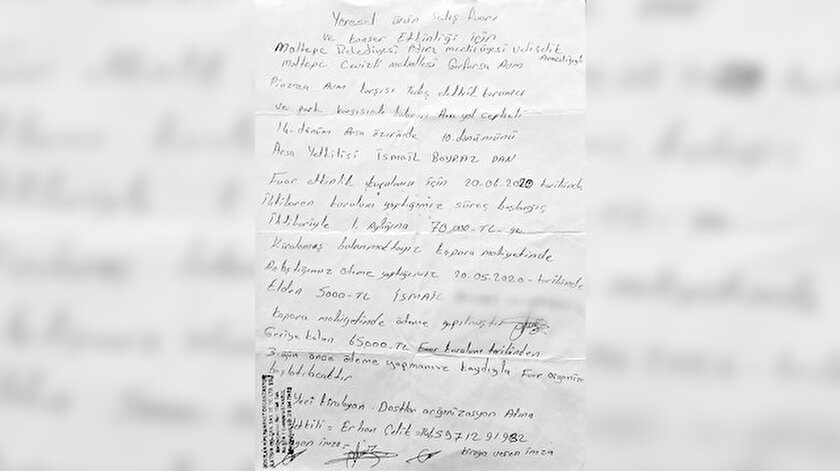 Yöresel ürün Satış Fuarı
ve konser Etkinliği için
Maltepe Belediyesi Adına Aracılığıyla
maltepe Cevizli mahallesi Carfursa Avm
Piazza Avm karşısı
ve park karşısında bulunan Ana yol cepheli
14-dönüm Arsa üzerinde 10.dönümünü
Arsa Yetkilisi İSMAİL BOYRAZ DAN
Fuar etkinlik kurulumu için 20-06.2020 tarihinde
itibaren kurulum yaptığımız süreç başlangıç
itibariyle 1. Aylığına 70,000-TL-
Kiralamış bulunmaktayız kapora mahiyetinde
ödeme yaptığımız 20-05-2020-tarihinde
Elden 5000-TL İSMAİL
kapora mahiyetinde ödeme yapılmıştır
Geriye kalan 65000.TL Fuar kurulum tarihinden
3.gün önce ödeme yapmamız kaydıyla Fuar
başlatılacaktır
Yeri kiralayan. organizasyon Adına
Yetkili = Erhan Çelik = 5971291982
imza = kiraya veren imza